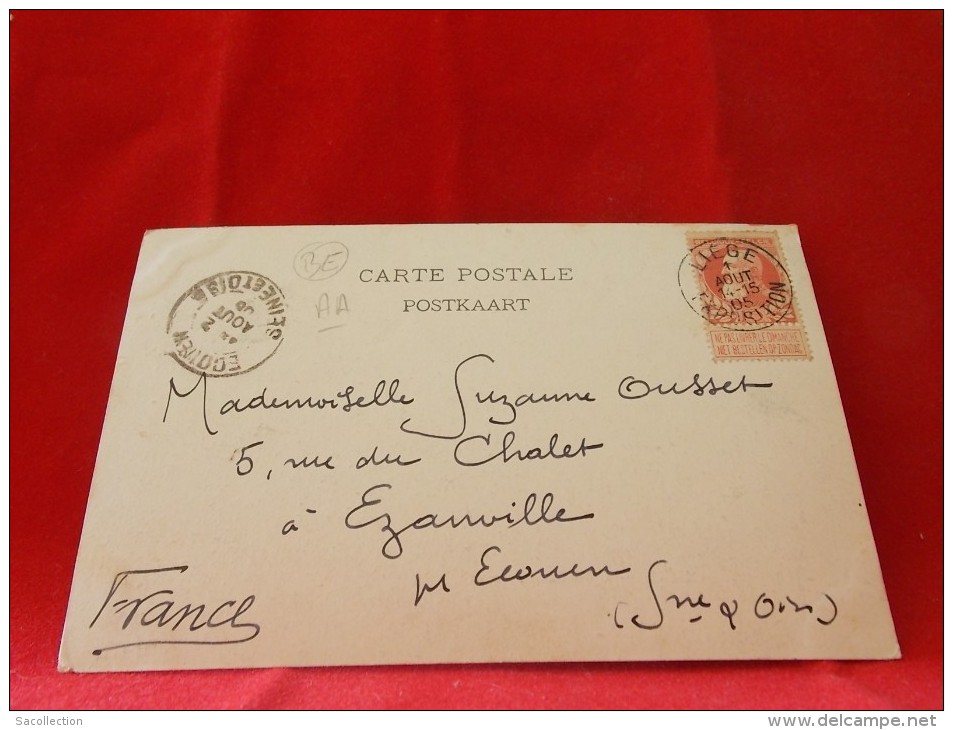 BE
AA
CARTE POSTALE
POSTKAART
LIÈGE
1
AOUT
14-15
05
EXPOSITION
NE PAS LIVRER LE DIMANCHE
NIET BESTELLEN OP ZONDAG
ECOUEN
2
AOUT
05
SEINE ET OISE
Mademoiselle Suzanne Ousset
5, rue du Chalet
à Ezanville
pr Ecouen
(Sne & Oise)
France
Sacollection
www.delcampe.net